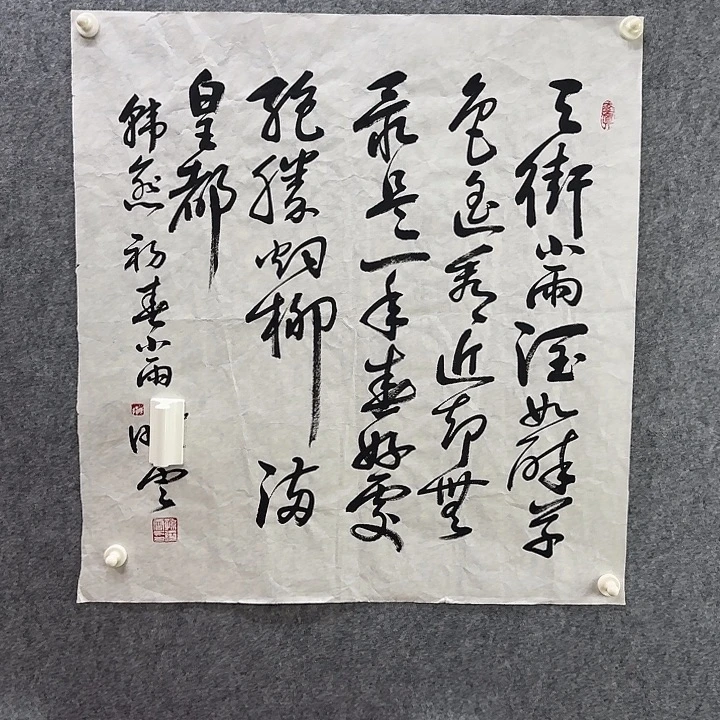 天街小雨潤如酥草
色遥看近却無
最是一年春好處
絶勝烟柳滿
皇都
韩愈初春小雨
云